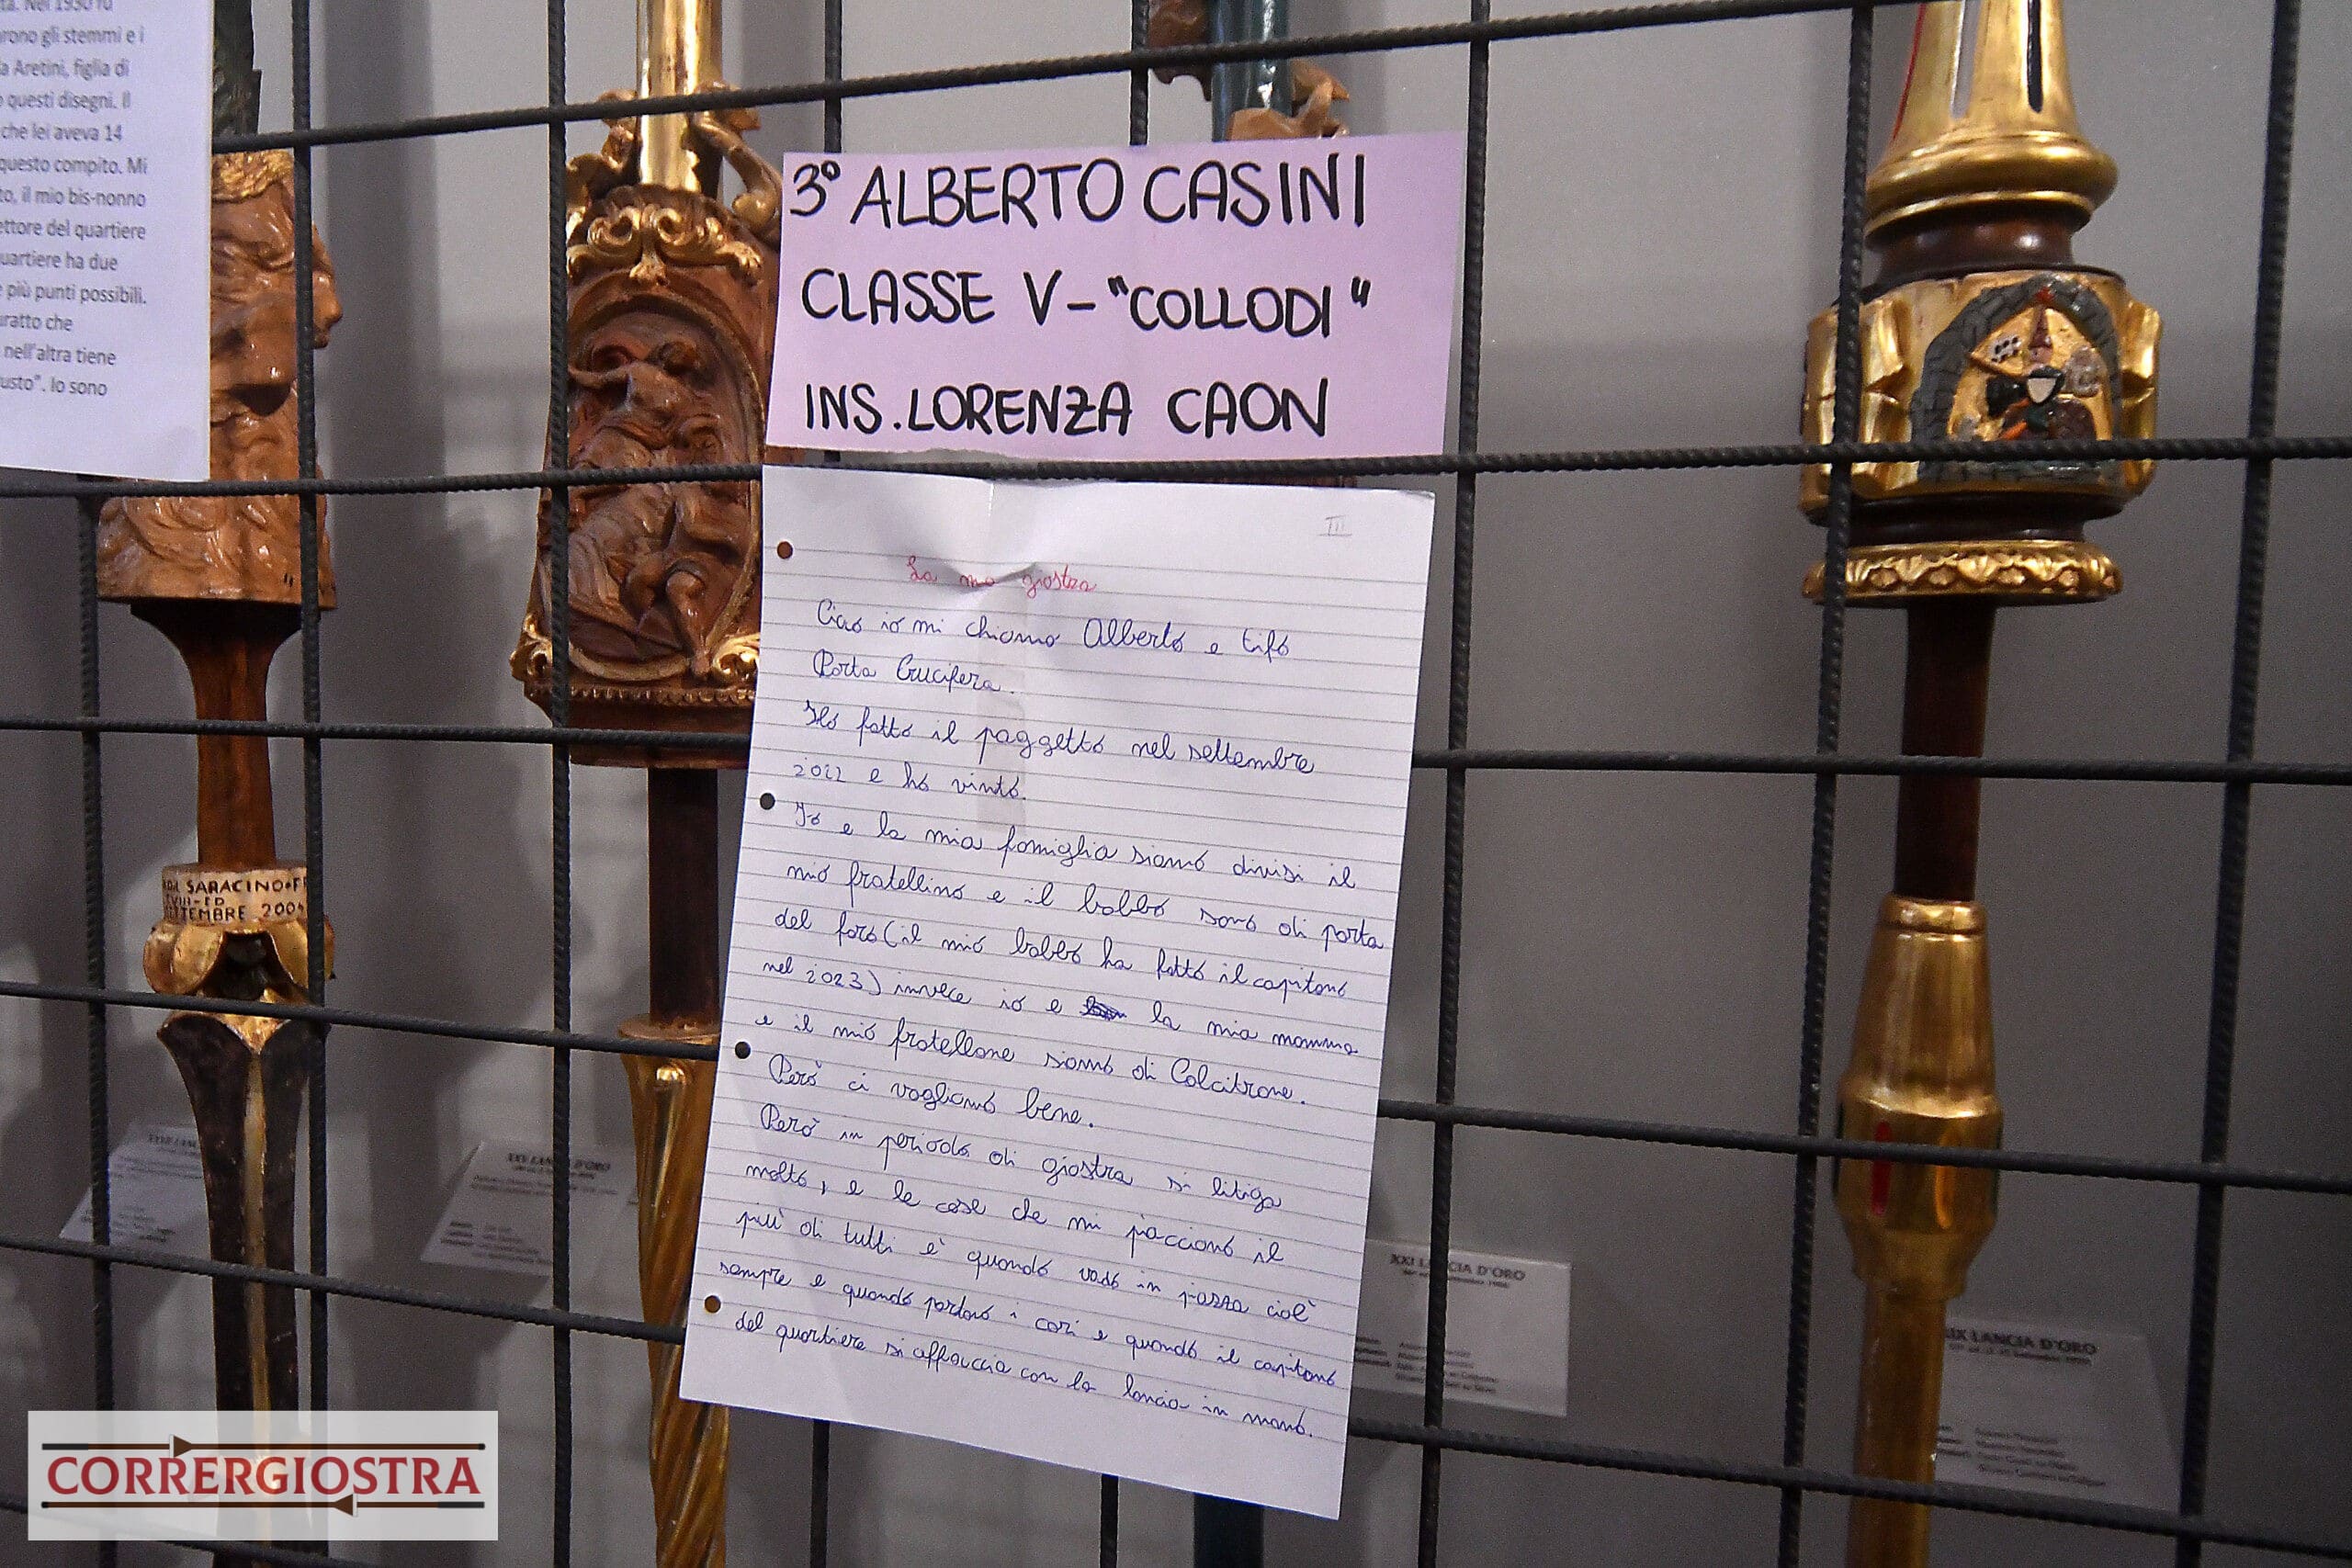 ta. Nel 1930 fu
rono gli stemmi e i
a Aretini, figlia di
questi disegni. Il
che lei aveva 14
questo compito. Mi
to, il mio bis-nonno
ettore del quartiere
uartiere ha due
più punti possibili.
uratto che
nell'altra tiene
usto". Io sono
3° ALBERTO CASINI
CLASSE V - "COLLODI"
INS. LORENZA CAON
III
La mia giostra
Ciao io mi chiamo Alberto e tifo
Porta Crucifera.
Ho fatto il paggetto nel settembre
2022 e ho vinto.
Io e la mia famiglia siamo divisi il
mio fratellino e il babbo sono di porta
del foro (il mio babbo ha fatto il capitano
nel 2023) invece io e la mia mamma
e il mio fratellone siamo di Colcitrone.
Però ci vogliamo bene.
Però in periodo di giostra si litiga
molto, e le cose che mi piacciono il
più di tutti è quando vado in piazza cioè
sempre e quando partono i cori e quando il capitano
del quartiere si affaccia con la lancia in mano.
SARACINO
SETTEMBRE 2004
LANCIA D'ORO
XXI LANCIA D'ORO
XIX LANCIA D'ORO
CORRERGIOSTRA